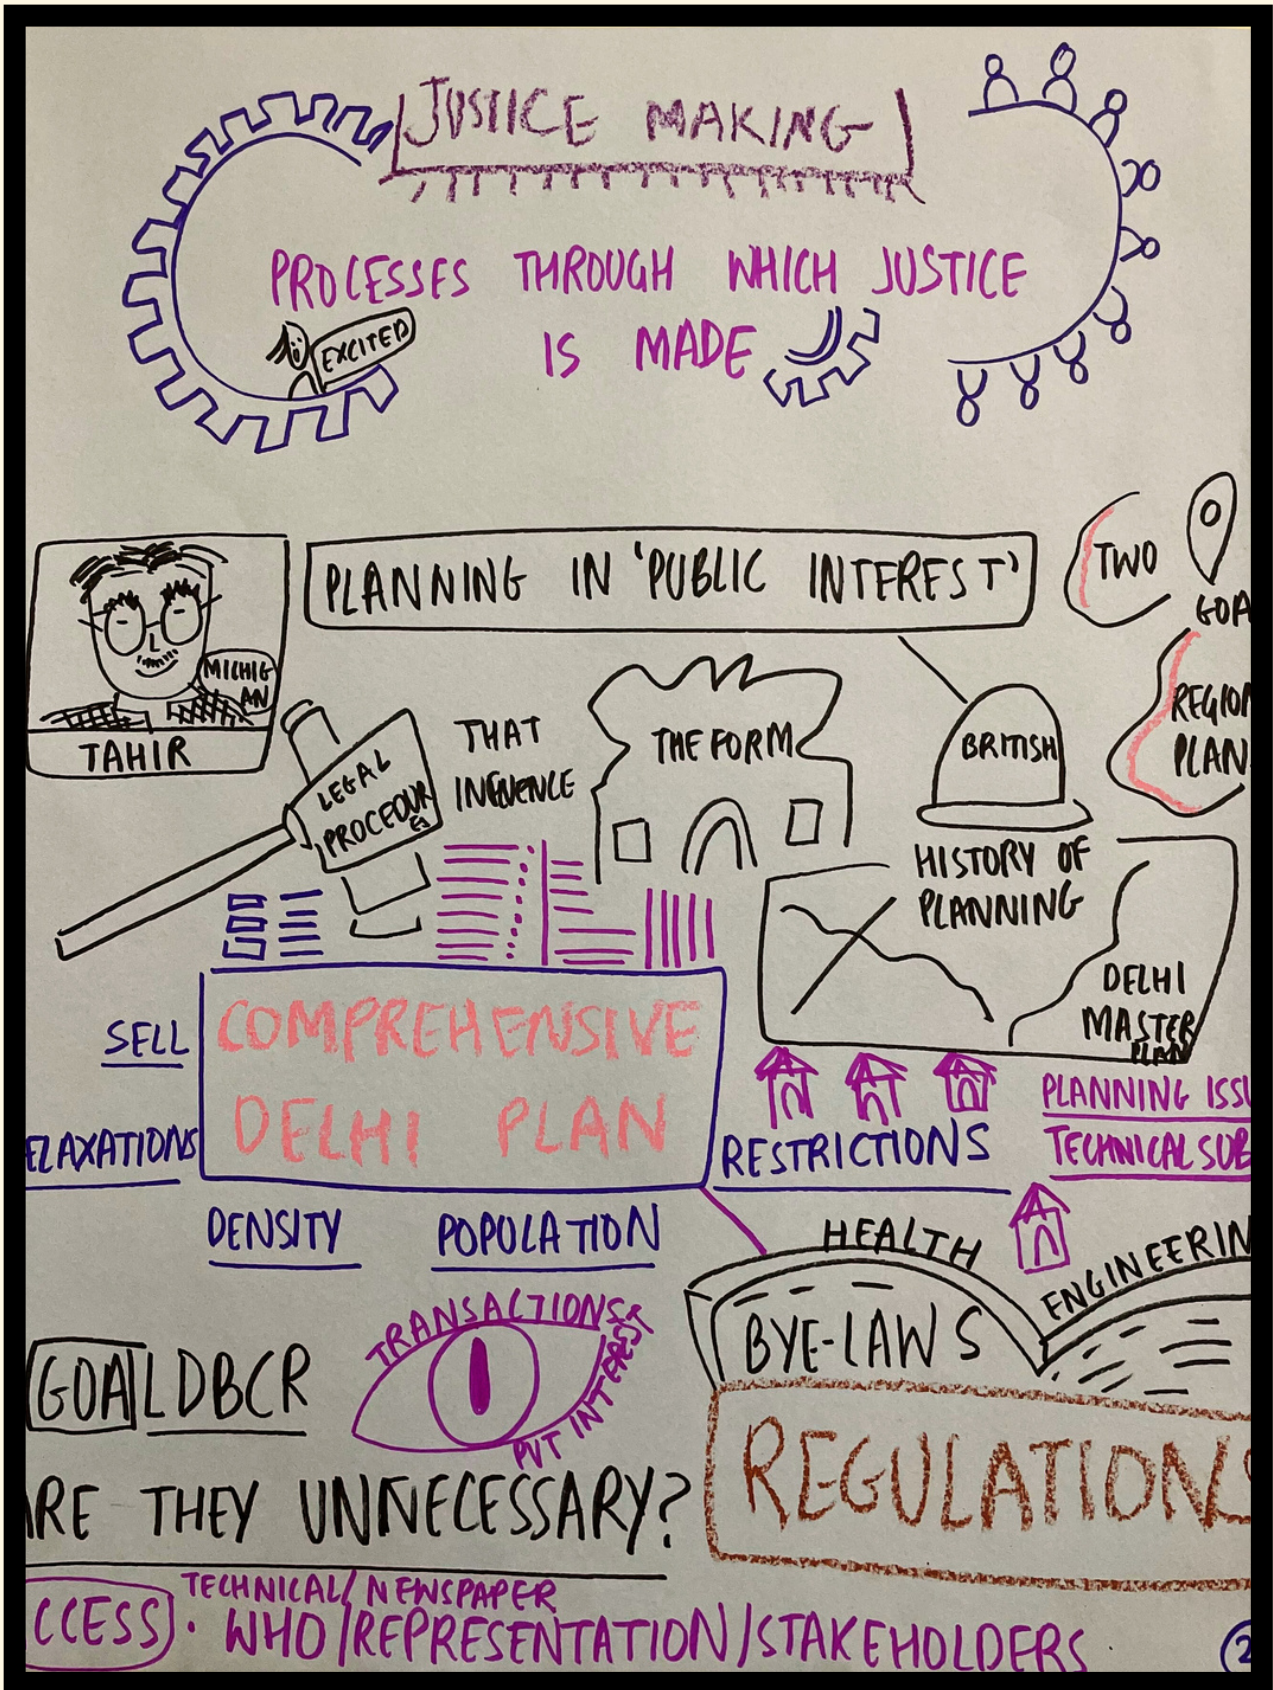 JUSTICE MAKING
PROCESSES THROUGH WHICH JUSTICE
IS MADE
EXCITED
PLANNING IN 'PUBLIC INTEREST'
TWO
GOA
REGION
PLAN
MICHIG
AN
TAHIR
LEGAL
PROCEDUR
ES
THAT
INFLUENCE
THE FORM
BRITISH
HISTORY OF
PLANNING
DELHI
MASTER
PLAN
SELL
COMPREHENSIVE
DELHI PLAN
ELAXATIONS
RESTRICTIONS
PLANNING ISSU
TECHNICAL SUB
DENSITY
POPULATION
HEALTH
ENGINEERIN
BYE-LAWS
REGULATIONS
TRANSACTIONS
PVT INTEREST
GOA LDBCR
ARE THEY UNNECESSARY?
TECHNICAL/NEWSPAPER
CCESS . WHO/REPRESENTATION/STAKEHOLDERS
2